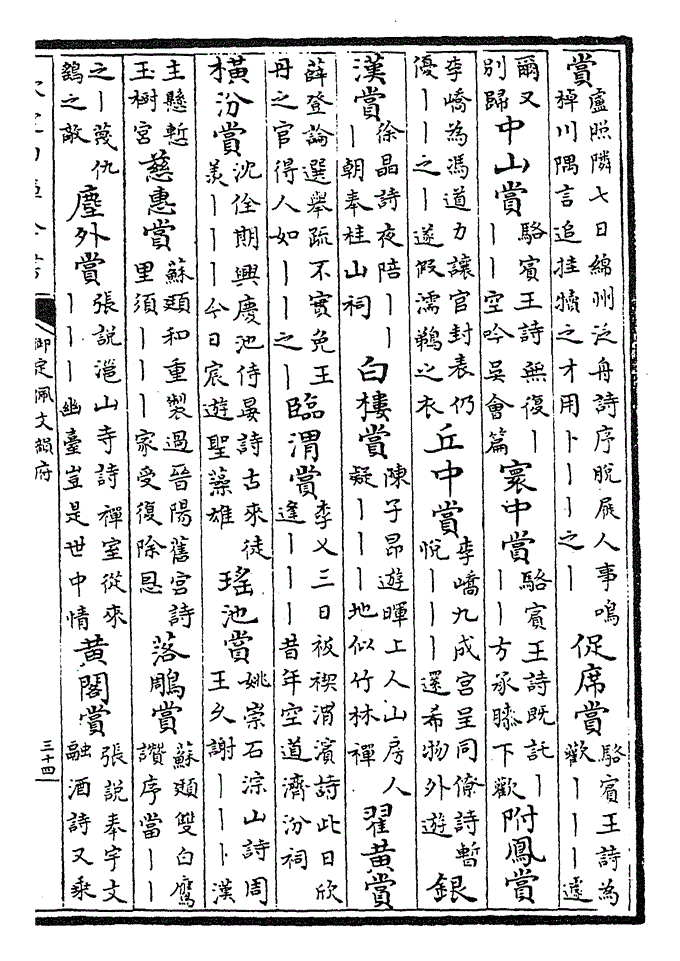 賞盧照隣七日綿州泛舟詩序脫屣人事鳴
棹川隅言追挂犢之才用卜丨丨丨之丨
促席賞駱賓王詩為
歡丨丨丨遽
爾又
別歸
中山賞駱賓王詩無復丨
丨丨空吟吳會篇
寰中賞駱賓王詩既託丨
丨丨方承膝下歡
附鳳賞
李嶠為馮道力讓官封表仍
優丨丨之丨遂假濡鵜之衣
丘中賞李嶠九成宮呈同僚詩暫
悅丨丨丨還希物外遊
銀
漢賞徐晶詩夜陪丨丨
丨朝奉桂山祠
白樓賞陳子昂遊暉上人山房人
疑丨丨丨地似竹林禪
翟黃賞
薛登論選舉疏不實免王
丹之官得人如丨丨之丨
臨渭賞李乂三日祓禊渭濱詩此日欣
逢丨丨丨昔年空道濟汾祠
橫汾賞沈佺期興慶池侍晏詩古來徒
羨丨丨丨今日宸遊聖藻雄
瑤池賞姚崇石淙山詩周
王久謝丨丨丨漢
主懸慙
玉樹宮
慈惠賞蘇頲和重製過晉陽舊宮詩
里須丨丨丨家受復除恩
落鵰賞蘇頲雙白鷹
讚序當丨丨
之丨蔑仇
鷄之敵
塵外賞張說灉山寺詩禪室從來
丨丨丨幽臺豈是世中情
黃閣賞張說奉宇文
融酒詩又乘
御定佩文韻府
三十四